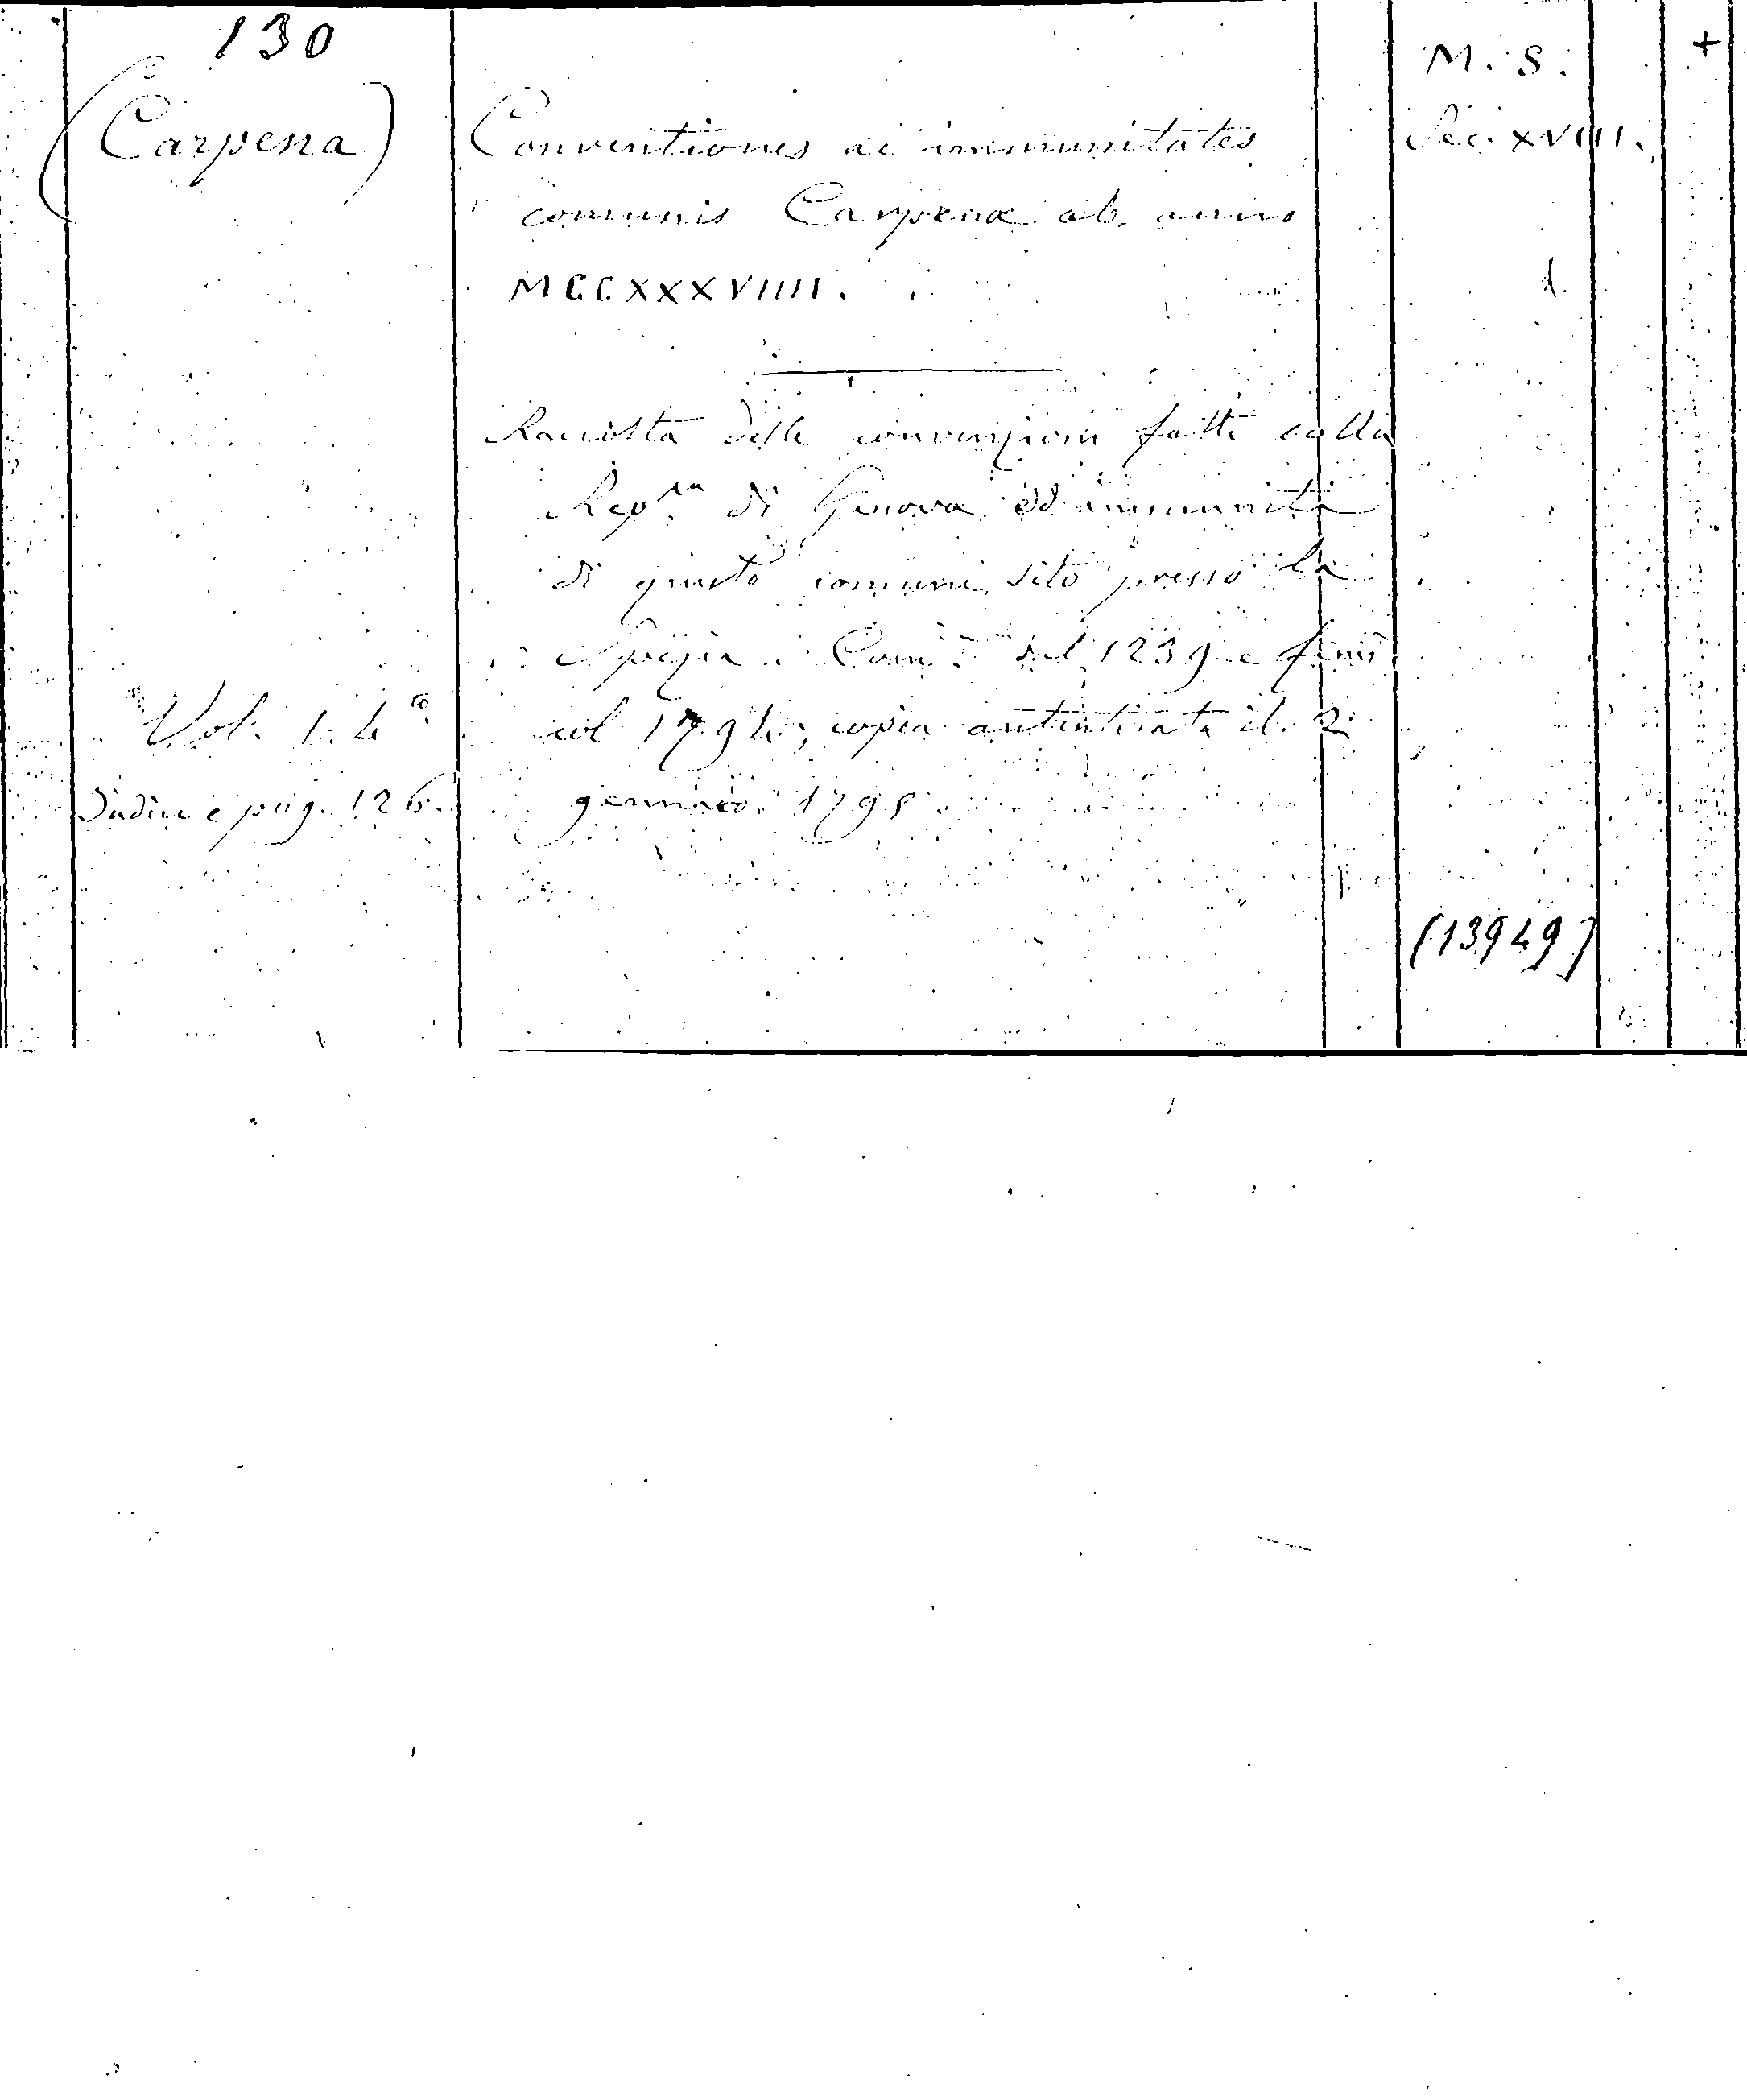 130
(Carpena)
Conventiones ac immunitates
comunis Carpenæ ab anno
MCCXXXVIIII.
Raccolta delle convenzioni fatte colla
Rep.ca di Genova ed immunità
di questo comune sito presso la
Spezia. Com.a dal 1239 e finì
col 1794; copia autenticata il 2
gennaio 1795
Vol. 1. 4°
Indice e pag. 126.
M. S.
Sec. XVIII.
(13949)
+